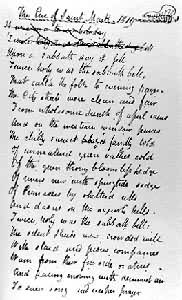 The Eve of Saint Mark. 1819
Upon a Sabbath day it fell
Twice holy was the sabbath bell,
That call'd the folk to evening prayer.
The City streets were clean and fair
From wholesome drench of april rains
And on the western window panes
The chilly sunset faintly told
Of immatur'd green vallies cold
Of the green thorny bloomless hedge
Of rivers new with springtide sedge
Of Primroses by shelter'd rills
And daisies on the aguish hills.
Twice holy was the sabbath bell:
The silent streets were crowded well
With staid and pious companies
Warm from their fire side
And moving with demurest air
To even song and vesper prayer